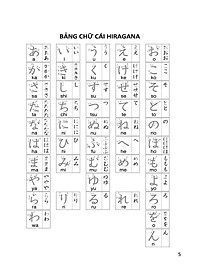 BẢNG CHỮ CÁI HIRAGANA
あ い う え お
a i u e o
か き く け こ
ka ki ku ke ko
さ し す せ そ
sa shi su se so
た ち つ て と
ta chi tsu te to
な に ぬ ね の
na ni nu ne no
は ひ ふ へ ほ
ha hi fu he ho
ま み む め も
ma mi mu me mo
や ゆ よ
ya yu yo
ら り る れ ろ
ra ri ru re ro
わ を
wa o
ん
n
5